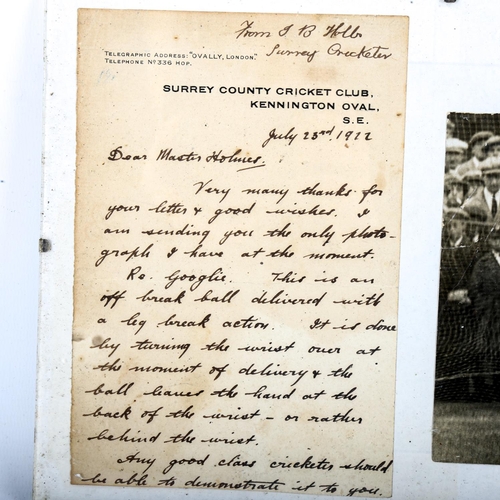 From J B Hobbs
Surrey Cricketer
TELEGRAPHIC ADDRESS: "OVALLY, LONDON,"
TELEPHONE No 336 HOP.
SURREY COUNTY CRICKET CLUB,
KENNINGTON OVAL,
S.E.
July 23rd 1922
Dear Master Holmes,
Very many thanks for
your letter & good wishes. I
am sending you the only photo-
graph I have at the moment.
Re. Googlie. This is an
off break ball delivered with
a leg break action. It is done
by turning the wrist over at
the moment of delivery & the
ball leaves the hand at the
back of the wrist - or rather
behind the wrist.
Any good class cricketer should
be able to demonstrate it to you.